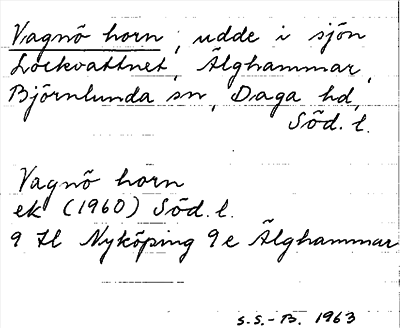 Vagnö horn, udde i sjön
Lockvattnet, Älghammar,
Björnlunda sn, Daga hd,
Söd. l.
Vagnö horn
ek (1960) Söd. l.
9 H Nyköping 9e Älghammar
S.S.-B. 1963